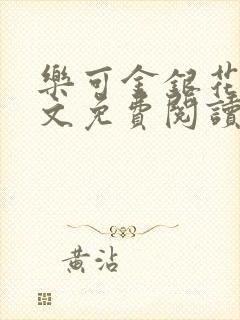 樂可金銀花
文免費閱讀
黃沾